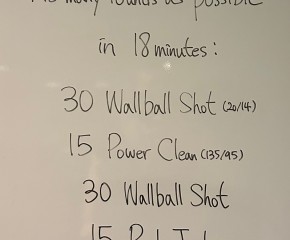 as possible
in 18 minutes:
30 Wallball Shot (20/14)
15 Power Clean (135/95)
30 Wallball Shot
15